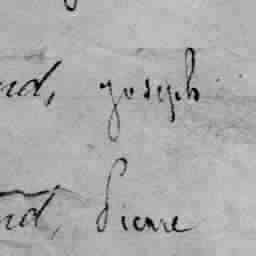 nd, joseph
nd, Pierre